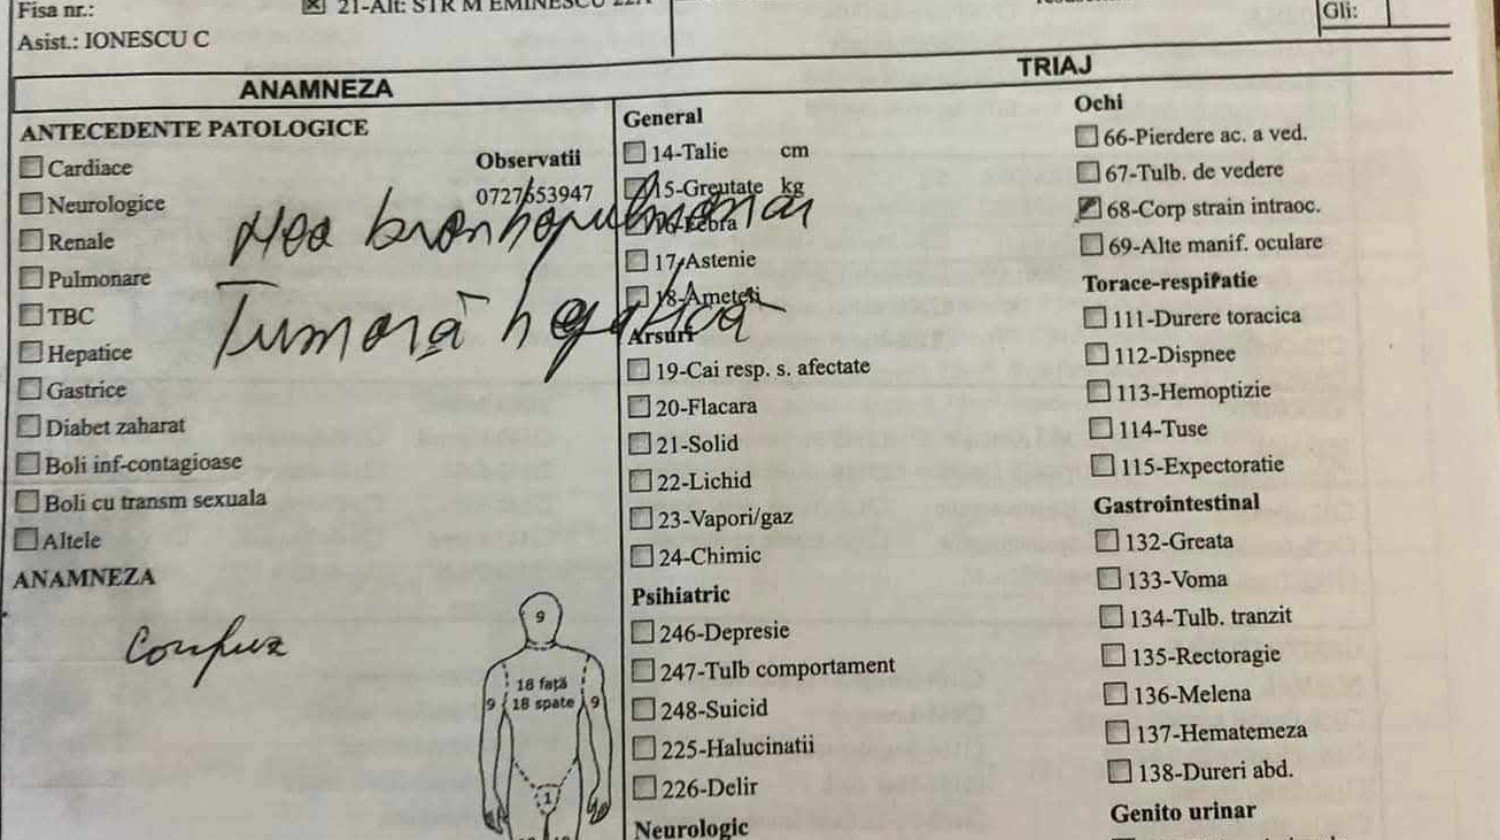 Fisa nr.:
21-Alt: STR M EMINESCU 22A
Gli:
Asist.: IONESCU C
ANAMNEZA
TRIAJ
ANTECEDENTE PATOLOGICE
Cardiace
Neurologice
Renale
Pulmonare
TBC
Hepatice
Gastrice
Diabet zaharat
Boli inf-contagioase
Boli cu transm sexuala
Altele
Observatii
0727653947
Neo bronhopulmonar
Tumoră hepatică
ANAMNEZA
Confuz
9
18 față
9 18 spate 9
1
General
14-Talie cm
15-Greutate kg
16-Febra
17-Astenie
18-Ameteti
Arsuri
19-Cai resp. s. afectate
20-Flacara
21-Solid
22-Lichid
23-Vapori/gaz
24-Chimic
Psihiatric
246-Depresie
247-Tulb comportament
248-Suicid
225-Halucinatii
226-Delir
Neurologic
Ochi
66-Pierdere ac. a ved.
67-Tulb. de vedere
68-Corp strain intraoc.
69-Alte manif. oculare
Torace-respiratie
111-Durere toracica
112-Dispnee
113-Hemoptizie
114-Tuse
115-Expectoratie
Gastrointestinal
132-Greata
133-Voma
134-Tulb. tranzit
135-Rectoragie
136-Melena
137-Hematemeza
138-Dureri abd.
Genito urinar